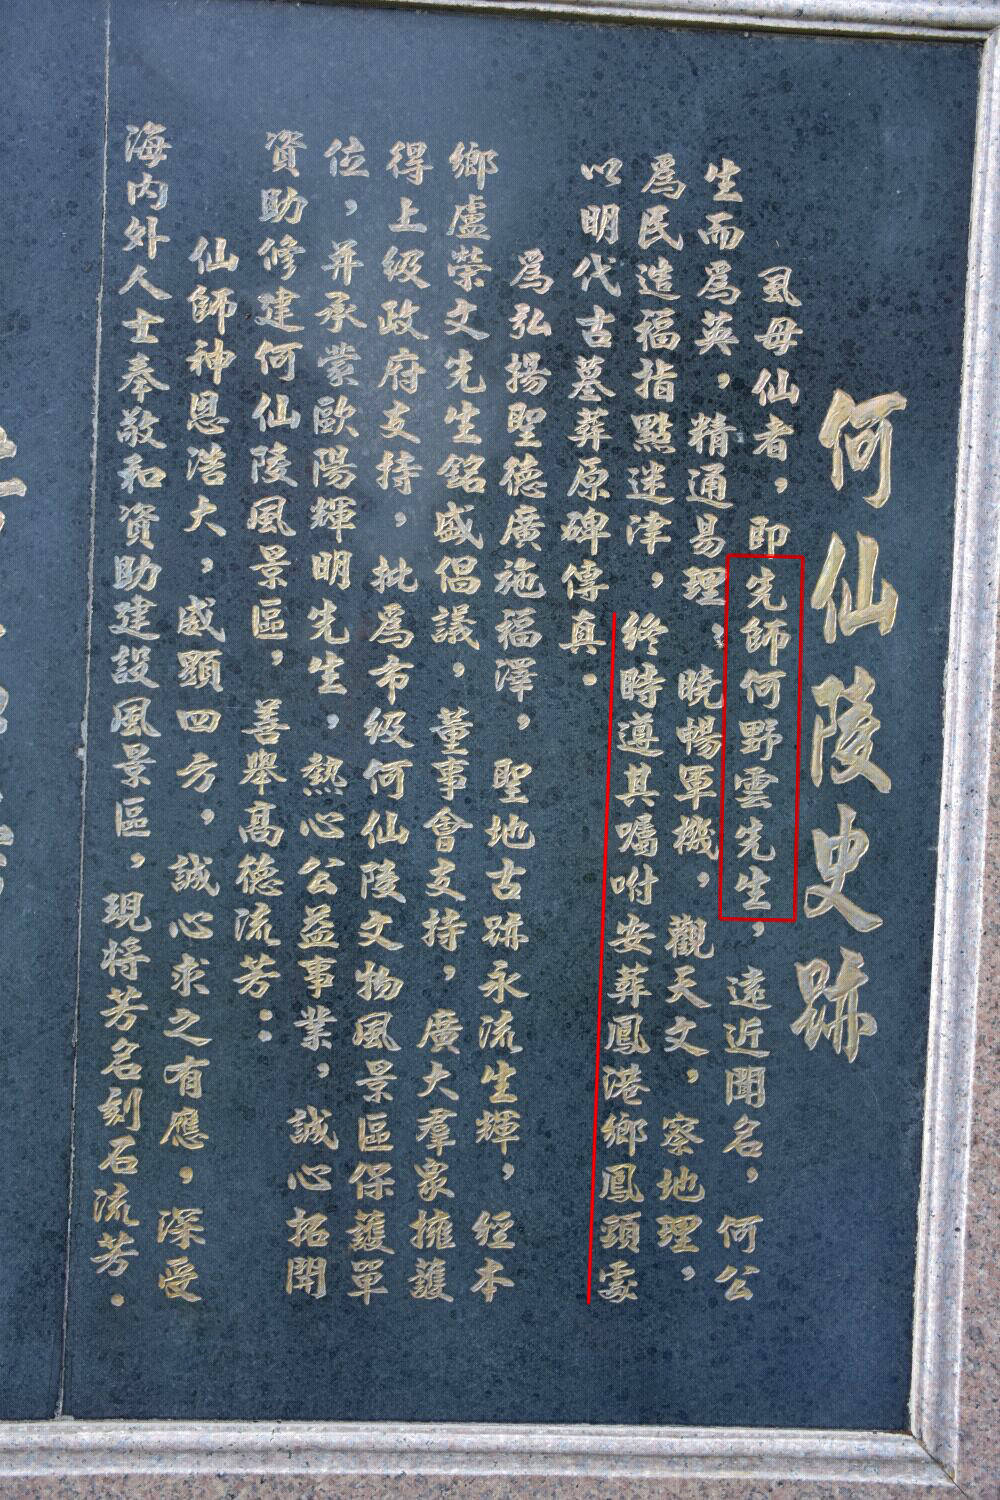 何仙陵史跡
虱母仙者，即先師何野雲先生，遠近聞名，何公
生而爲英，精通易理，曉暢軍機，觀天文，察地理，
爲民造福指點迷津，終時遵其囑咐安葬鳳港鄉鳳頭處
以明代古墓葬原碑傳真。
爲弘揚聖德廣施福澤，聖地古跡永流生輝，經本
鄉盧榮文先生銘盛倡議，董事會支持，廣大羣衆擁護
得上级政府支持，批爲市级何仙陵文物風景區保護單
位，并承蒙歐陽輝明先生，熱心公益事業，誠心拓開
資助修建何仙陵風景區，善舉高德流芳：
仙師神恩浩大，威顯四方，誠心求之有應，深受
海内外人士奉敬和資助建設風景區，現將芳名刻石流芳。